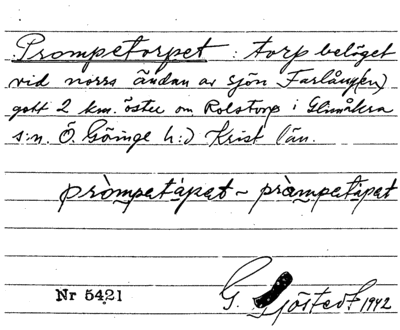 Prompetorpet : torp beläget
vid norra ändan av sjön Farlång(en)
gott 2 km. öster om Rolstorp i Glimåkra
s:n. Ö. Göinge h:d Krist. län.
pròmpatàpat ~ pràmpatàpat
Nr 5421
G. Sjöstedt 1942